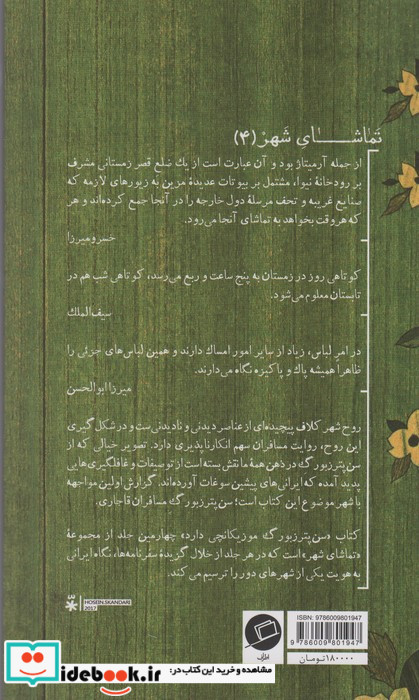 تماشای شهر (۴)
از جمله آرمیتاژ بود و آن عبارت است از یك ضلع قصر زمستانی مشرف
بر رودخانهٔ نیوا، مشتمل بر بیوتات عدیدهٔ مزین به زیورهای لازمه که
صنایع غریبه و تحف مرسلهٔ دول خارجه را در آنجا جمع کرده‌اند و هر
که هر وقت بخواهد به تماشای آنجا می‌رود.
خسرو میرزا
کوتاهی روز در زمستان به پنج ساعت و ربع می‌رسد، کوتاهی شب هم در
تابستان معلوم می‌شود.
سیف‌الملك
در امر لباس، زیاد از سایر امور امساك دارند و همین لباس‌های جزئی را
ظاهراً همیشه پاك و پاکیزه نگاه می‌دارند.
میرزا ابوالحسن
روح شهر کلاف پیچیده‌ای از عناصر دیدنی و نادیدنی‌ست و در شکل‌گیری
این روح، روایت مسافران سهم انکارناپذیری دارد. تصویر خیالی که از
سن‌پترزبورگ در ذهن همهٔ ما نقش بسته است از توصیفات و غافلگیری‌هایی
پدید آمده که ایرانی‌های پیشین سوغات آورده‌اند. گزارش اولین مواجهه
با شهر موضوع این کتاب است؛ سن‌پترزبورگ مسافران قاجاری.
کتاب «سن‌پترزبورگ موزیکانچی دارد» چهارمین جلد از مجموعهٔ
«تماشای شهر» است که در هر جلد از خلال گزیدهٔ سفرنامه‌ها، نگاه ایرانی
به هویت یکی از شهرهای دور را ترسیم می‌کند.
HOSEIN.SKANDARI
2017
اطراف
ISBN: 9786009801947
9 786009 801947
۱۸۰۰۰۰ تومان
iidebook.ir
مشاهده و خرید این کتاب در: